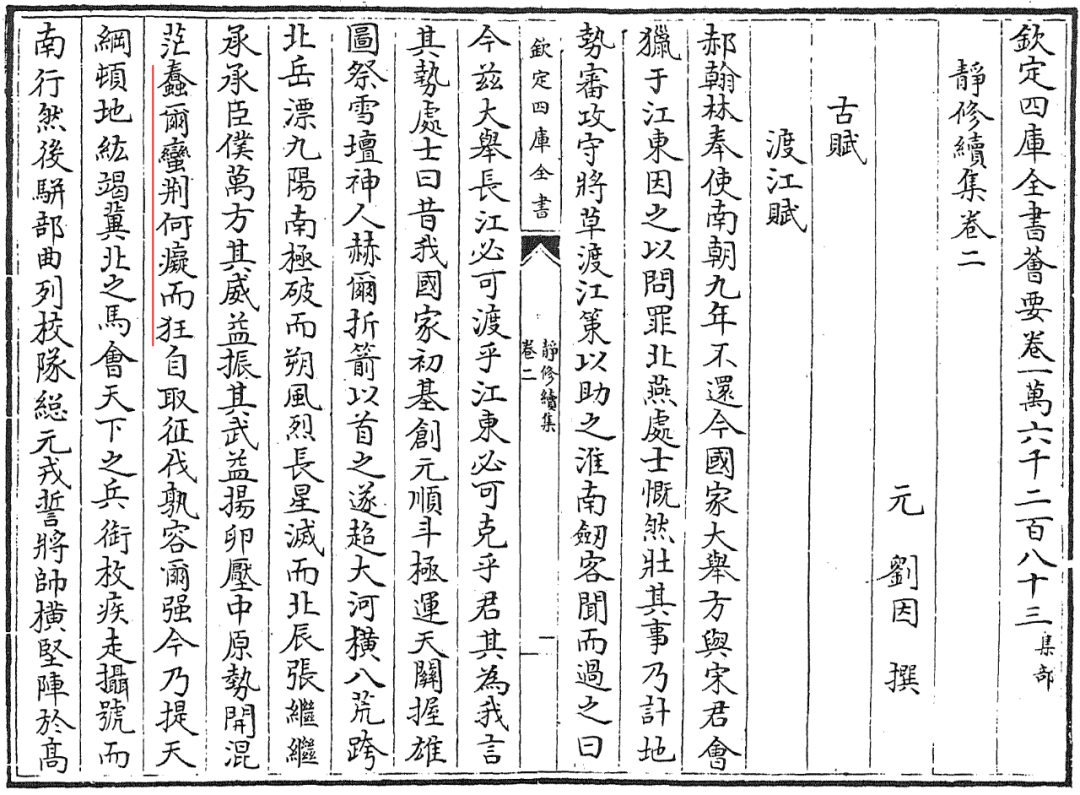 欽定四庫全書薈要卷一萬六千二百八十三集部
靜修續集卷二
元 劉因 撰
古賦
渡江賦
郝翰林奉使南朝九年不還今國家大舉方與宋君會
獵于江東因之以問罪北燕處士慨然壯其事乃計地
勢審攻守將草渡江策以助之淮南劒客聞而過之曰
欽定四庫全書
靜修續集
卷二
一
今茲大舉長江必可渡乎江東必可克乎君其為我言
其勢處士曰昔我國家初基創元順斗極運天關握雄
圖祭雪壇神人赫爾折箭以首之遂超大河橫八荒跨
北岳漂九陽南極破而朔風烈長星滅而北辰張繼繼
承承臣僕萬方其威益振其武益揚卵壓中原勢開混
茫蠢爾蠻荆何癡而狂自取征伐孰容爾强今乃提天
綱頓地紘竭冀北之馬會天下之兵銜枚疾走攝號而
南行然後駢部曲列校隊総元戎誓將帥橫堅陣於髙